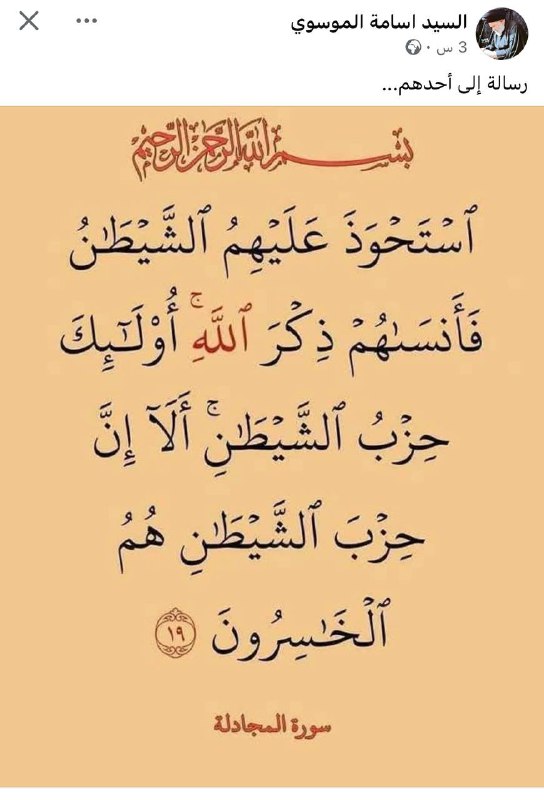 السيد اسامة الموسوي
3 س ·
رسالة إلى أحدهم...
بسم الله الرحمن الرحيم
ٱسۡتَحۡوَذَ عَلَيۡهِمُ ٱلشَّيۡطَٰنُ
فَأَنسَىٰهُمۡ ذِكۡرَ ٱللَّهِۚ أُوْلَٰٓئِكَ
حِزۡبُ ٱلشَّيۡطَٰنِۚ أَلَآ إِنَّ
حِزۡبَ ٱلشَّيۡطَٰنِ هُمُ
ٱلۡخَٰسِرُونَ ١٩
سورة المجادلة